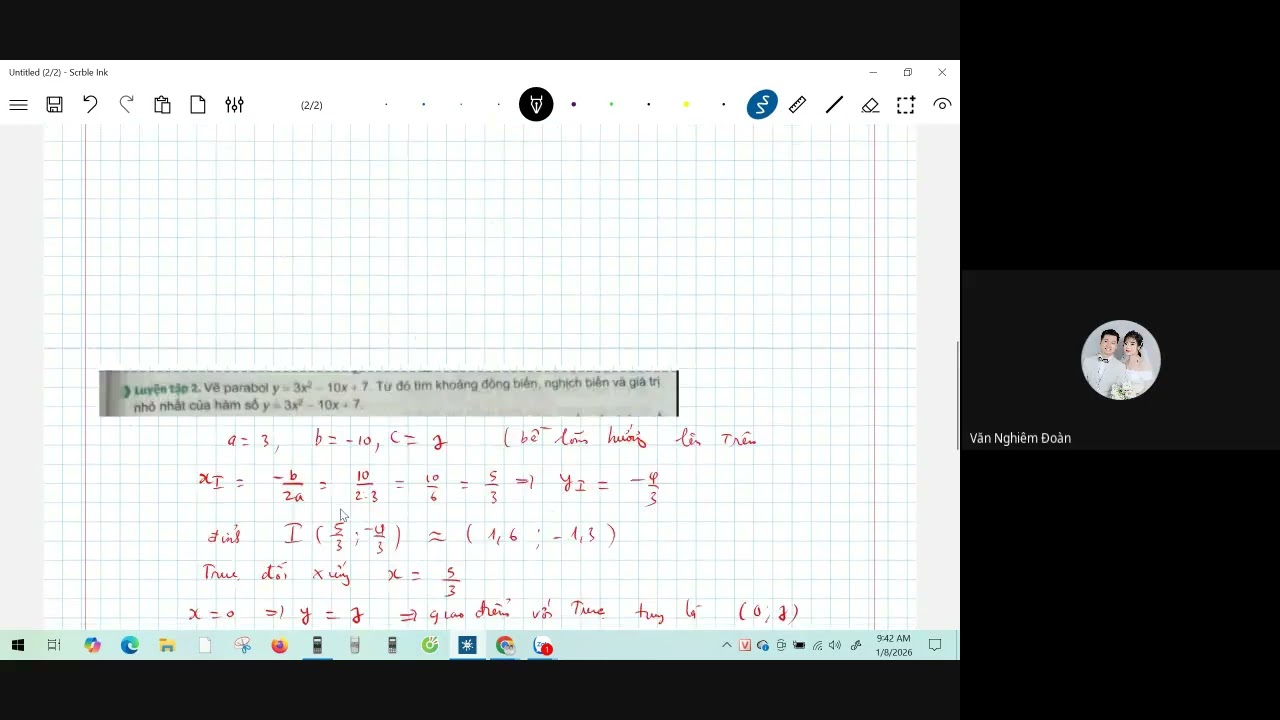 Untitled (2/2) - Scrble Ink
(2/2)
Luyện tập 2. Vẽ parabol y = 3x² – 10x + 7. Từ đó tìm khoảng đồng biến, nghịch biến và giá trị
nhỏ nhất của hàm số y = 3x² – 10x + 7.
a = 3, b = -10, c = 7 (bề lõm hướng lên Trên
x_I = -b/2a = 10/2.3 = 10/6 = 5/3 => y_I = -4/3
đỉnh I (5/3 ; -4/3) ≈ (1,6 ; -1,3)
Trục đối xứng x = 5/3
x = 0 => y = 7 => giao điểm với Trục tung là (0; 7)
Văn Nghiêm Đoàn
9:42 AM
1/8/2026